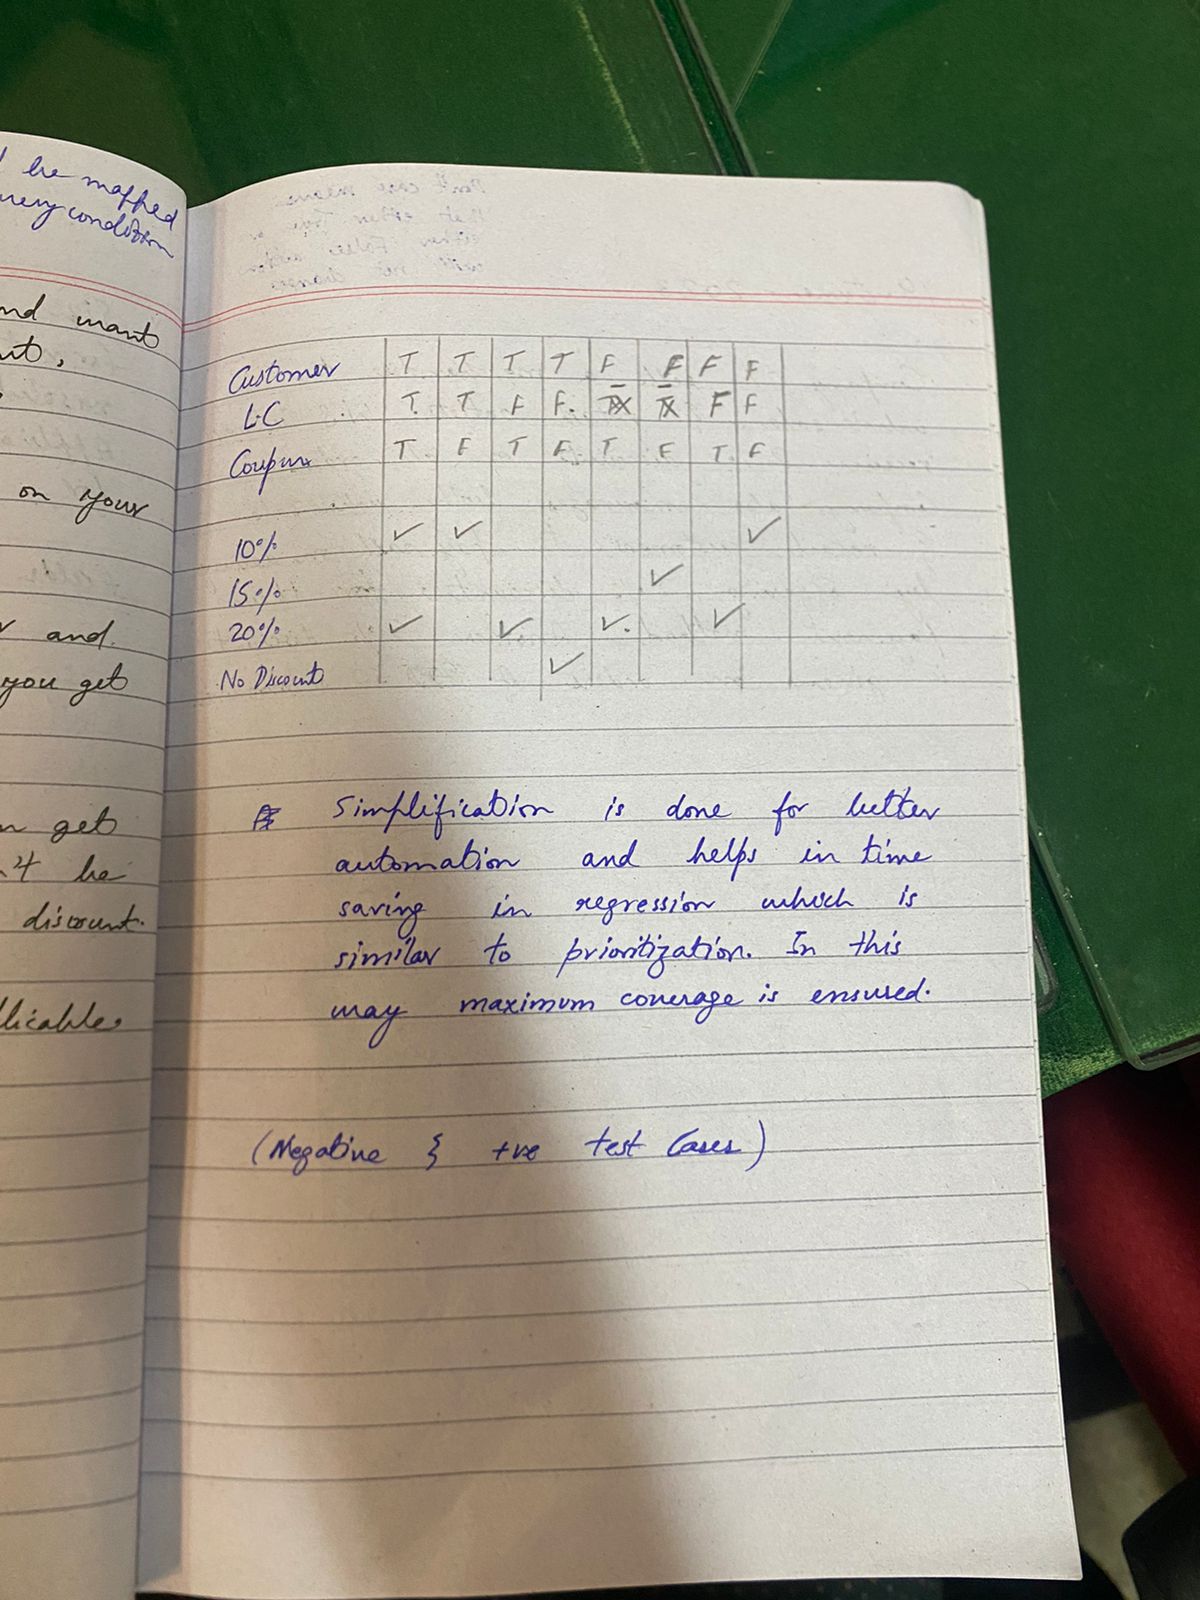 be mapped
every condition
and want
on your
and
you get
get
be
discount.
Customer T T T T F F F F
L.C T. T F F. F F
Coupon T F T F T F T F
10% ✓ ✓ ✓
15% ✓
20% ✓ ✓ ✓. ✓
No Discount ✓
Simplification is done for better
automation and helps in time
saving in regression which is
similar to prioritization. In this
way maximum coverage is ensured.
(Negative & +ve test Cases)